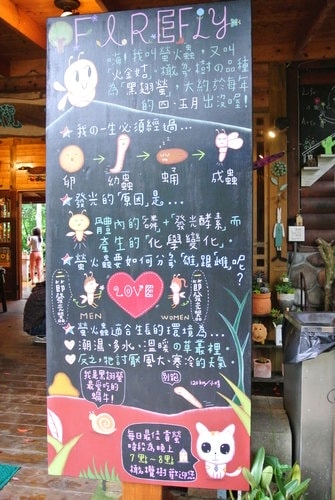 FIREFLY
嗨!我叫螢火蟲,又叫
"火金姑",橄欖樹の品種
為"黑翅螢",大約於每年
的四、五月出沒喔!
我の一生必須經過…
卵 幼蟲 蛹 成蟲
發光的"原因"是…
體內的"磷"+"發光酵素"而
產生的"化學變化"。
螢火蟲要如何分為"雄"跟"雌"呢?
二節發光器
LOVE
一節發光器
MEN
WOMEN
螢火蟲適合生長的環境為…
潮濕、多水、溫暖の草叢裡。
反之,牠討厭風大、寒冷的天氣
我是黑翅螢
最愛吃的
蝸牛!
別跑
120km/小時
每日最佳賞螢
時段為晚上
7點~8點
橄欖樹歡迎您